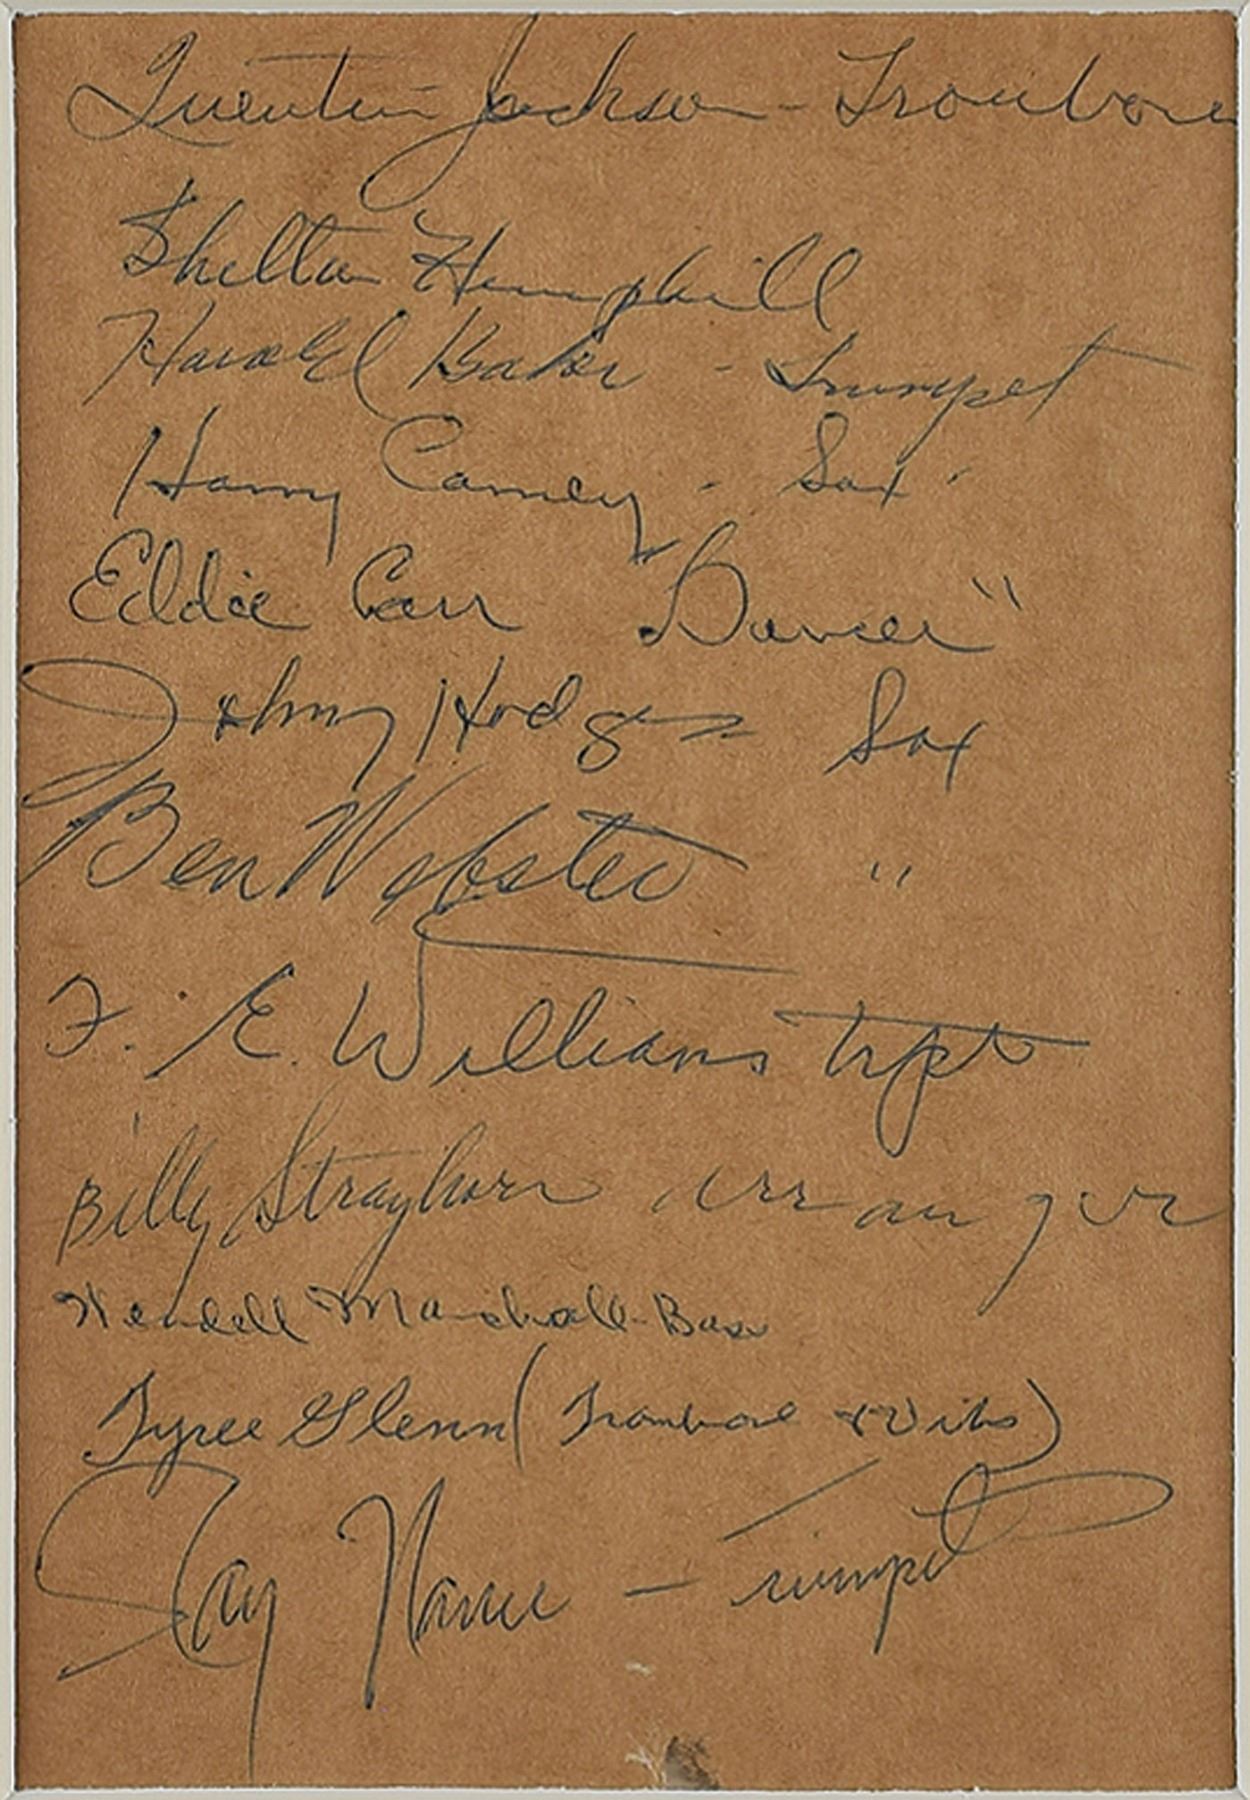 Quentin Jackson - Trombone
Shelton Hemphill
Harold Baker - Trumpet
Harry Carney - Sax.
Eddie Carr "Dancer"
Johnny Hodges Sax
Ben Webster "
F. E. Williams trpt
Billy Strayhorn arranger
Wendell Marshall - Bass
Tyree Glenn (Trombone & Vibs)
Ray Nance - Trumpet